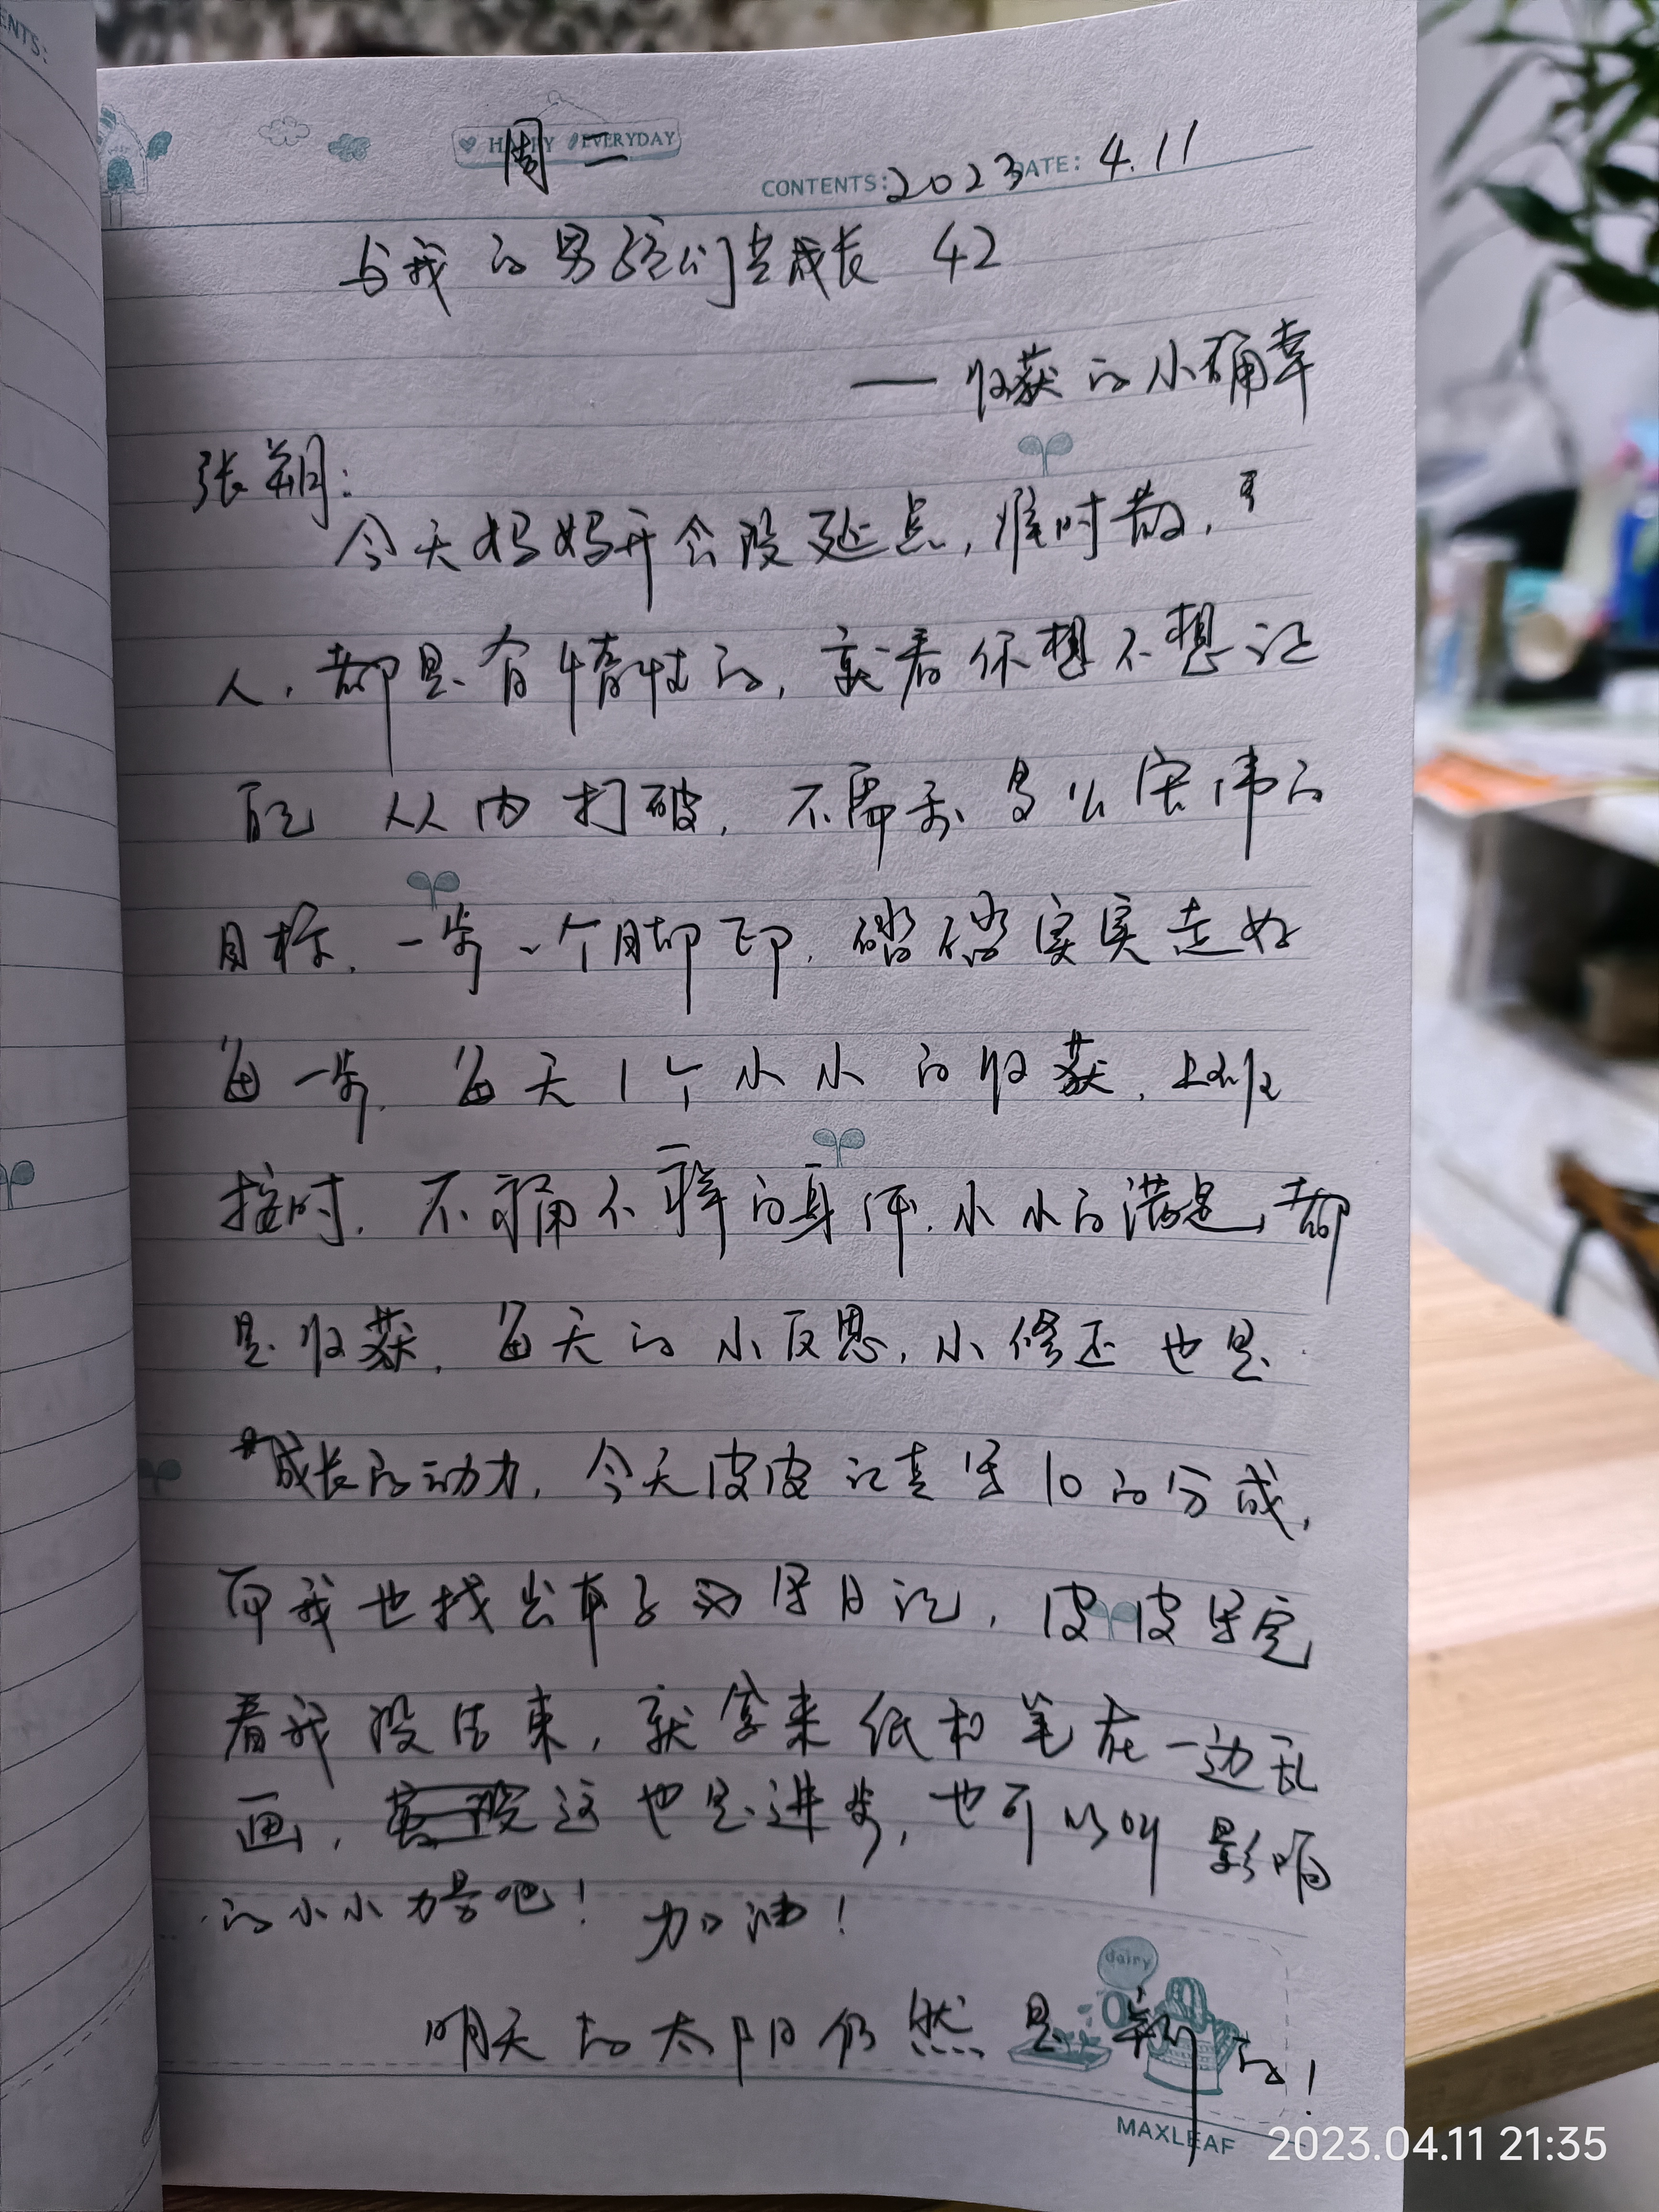 ENTS:
HAPPY EVERYDAY
周二
CONTENTS: 2023 DATE: 4.11
与我的男孩们共成长 42
——收获的小确幸
张朔：
今天妈妈开会没延点，准时散，
人，都是有惰性的，就看你想不想让
自己 从内打破，不需要多么宏伟的
目标，一步一个脚印，踏踏实实走好
每一步，每天1个小小的收获，上班
按时，不痛不痒的身体，小小的满足，都
是收获，每天的小反思，小修正也是
成长的动力，今天皮皮认真写10的分成，
而我也找出本子写日记，皮皮写完
看我没结束，就拿来纸和笔在一边乱
画，这也是进步，也可以叫影响
的小小力量吧！加油！
明天的太阳仍然是新的！
dairy
MAXLEAF
2023.04.11 21:35